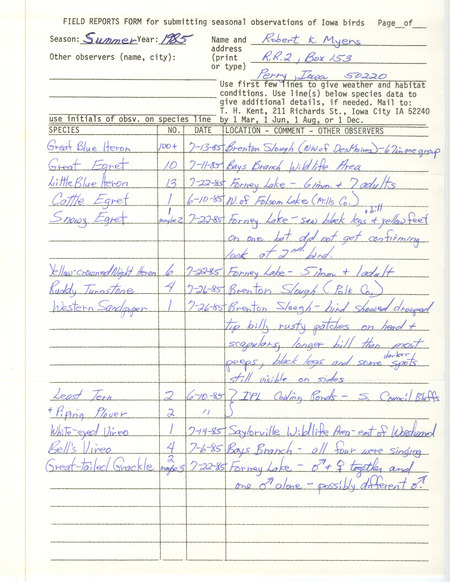 FIELD REPORTS FORM for submitting seasonal observations of Iowa birds Page__of__
Season: Summer Year: 1985 Name and Robert K. Myers
Other observers (name, city): address R.R.2, Box 153
(print
or type) Perry, Iowa 50220
Use first few lines to give weather and habitat
conditions. Use line(s) below species data to
give additional details, if needed. Mail to:
T. H. Kent, 211 Richards St., Iowa City IA 52240
use initials of obsv. on species line by 1 Mar, 1 Jun, 1 Aug, or 1 Dec.
SPECIES NO. DATE LOCATION - COMMENT - OTHER OBSERVERS
Great Blue Heron 100+ 7-13-85 Brenton Slough (NW of Des Moines) - 67 in one group
Great Egret 10 7-11-85 Bays Branch Wildlife Area
Little Blue Heron 13 7-22-85 Forney Lake - 6 imm + 7 adults
Cattle Egret 1 6-10-85 N. of Folsom Lake (Mills Co.)
Snowy Egret 1 maybe 2 7-22-85 Forney Lake - saw black legs + bill + yellow feet
on one but did not get confirming
look at 2nd bird.
Yellow-crowned Night Heron 6 7-22-85 Forney Lake - 5 imm + 1 adult
Ruddy Turnstone 4 7-26-85 Brenton Slough (Polk Co.)
Western Sandpiper 1 7-26-85 Brenton Slough - bird showed drooped
tip bill, rusty patches on head +
scapulars, longer bill than most
peeps, black legs and some darker spots
still visible on sides
Least Tern 2 6-10-85 } IPL Cooling Ponds - S. Council Bluffs
+ Piping Plover 2 " }
White-eyed Vireo 1 7-14-85 Saylorville Wildlife Area - east of Woodward
Bell's Vireo 4 7-6-85 Bays Branch - all four were singing
Great-tailed Grackle 2 maybe 3 7-22-85 Forney Lake - ♂ + ♀ together and
one ♂ alone - possibly different ♂.